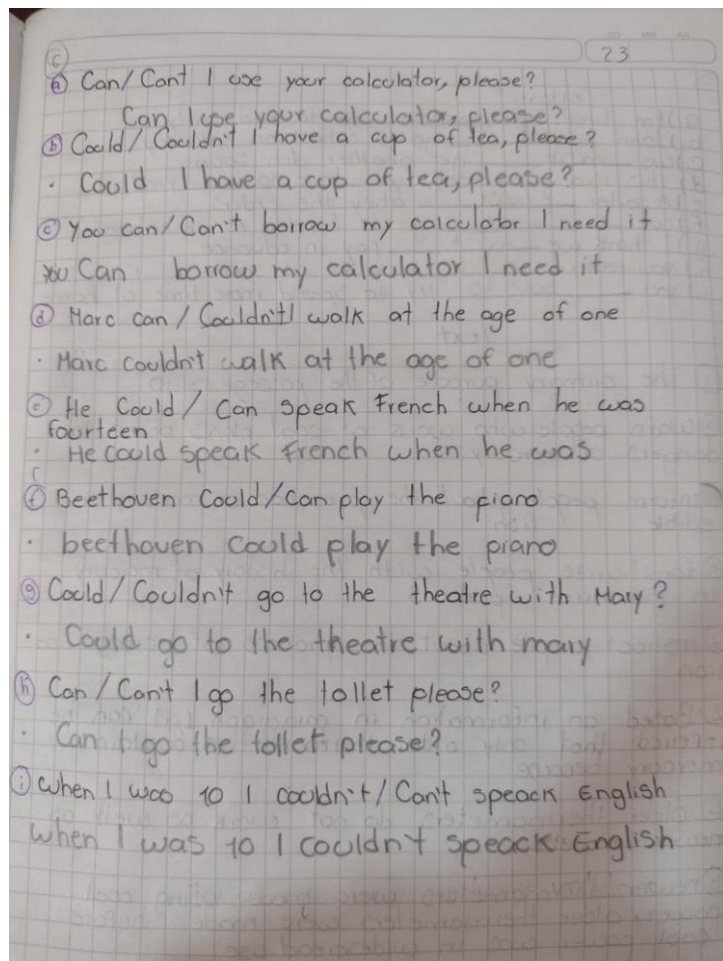 DD MM AA
C
23
a Can/Can't I use your calculator, please?
Can I use your calculator, please?
b Could/Couldn't I have a cup of tea, please?
· Could I have a cup of tea, please?
c You can/Can't borrow my calculator I need it
You Can borrow my calculator I need it
d Marc can/Couldn't walk at the age of one
· Marc couldn't walk at the age of one
e He Could/Can speak French when he was
fourteen
· He could speak French when he was
f Beethoven Could/Can play the piano
· beethoven could play the piano
g Could/Couldn't go to the theatre with Mary?
· Could go to the theatre with mary
h Can/Can't I go the tollet please?
· Can I go the tollet please?
i When I was 10 I couldn't/Can't speack English
When I was 10 I couldn't speack English